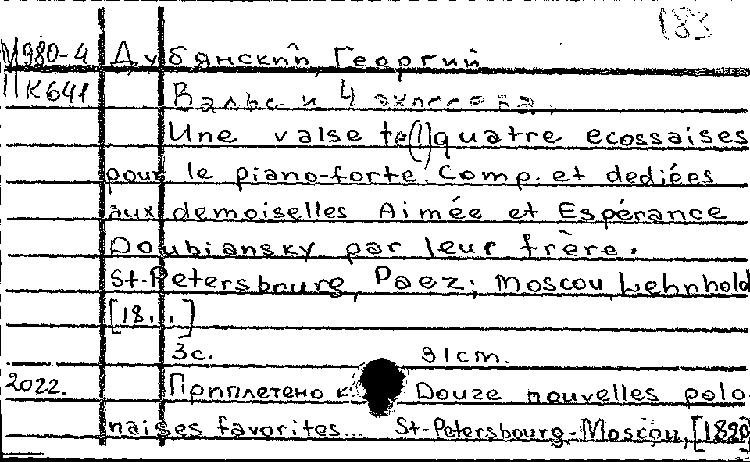 183
М980-4 Дубянский, Георгий
П к641 Вальс и 4 экосеза.
Une valse te(!) quatre ecossaises
pour le piano-forte. Comp. et dediées
aux demoiselles Aimée et Espérance
Doubiansky par leur frère.
St-Petersbourg, Paez; Moscou, Lehnhold
[18..]
3с. 31cm.
2022. Приплетено к Douze nouvelles polo-
naises favorites... St-Petersbourg-Moscou, [1820